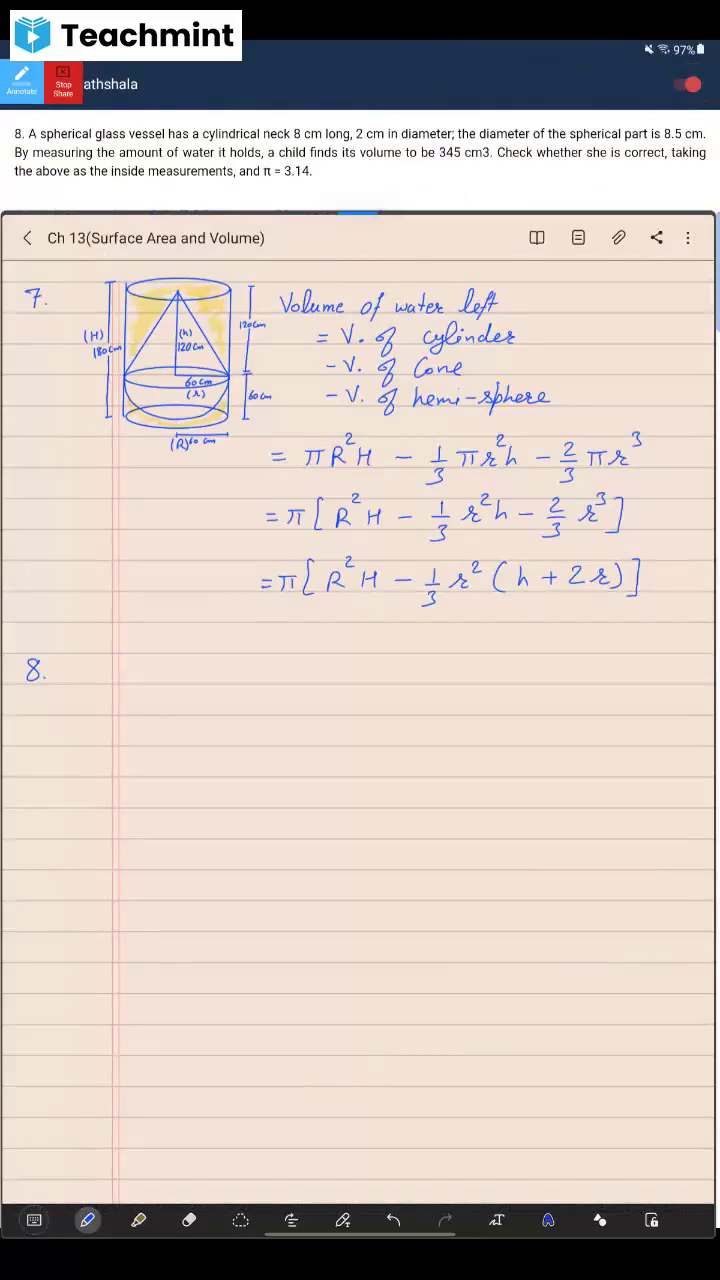 Teachmint
97%
Annotate
Stop Share
athshala
8. A spherical glass vessel has a cylindrical neck 8 cm long, 2 cm in diameter; the diameter of the spherical part is 8.5 cm.
By measuring the amount of water it holds, a child finds its volume to be 345 cm3. Check whether she is correct, taking
the above as the inside measurements, and π = 3.14.
Ch 13(Surface Area and Volume)
7.
(H)
180cm
(h)
120cm
120cm
60cm
(r)
60cm
(R)60 cm
Volume of water left
= V. of cylinder
- V. of Cone
- V. of hemi-sphere
= πR²H - 1/3 πr²h - 2/3 πr³
= π[R²H - 1/3 r²h - 2/3 r³]
= π[R²H - 1/3 r² (h + 2r)]
8.